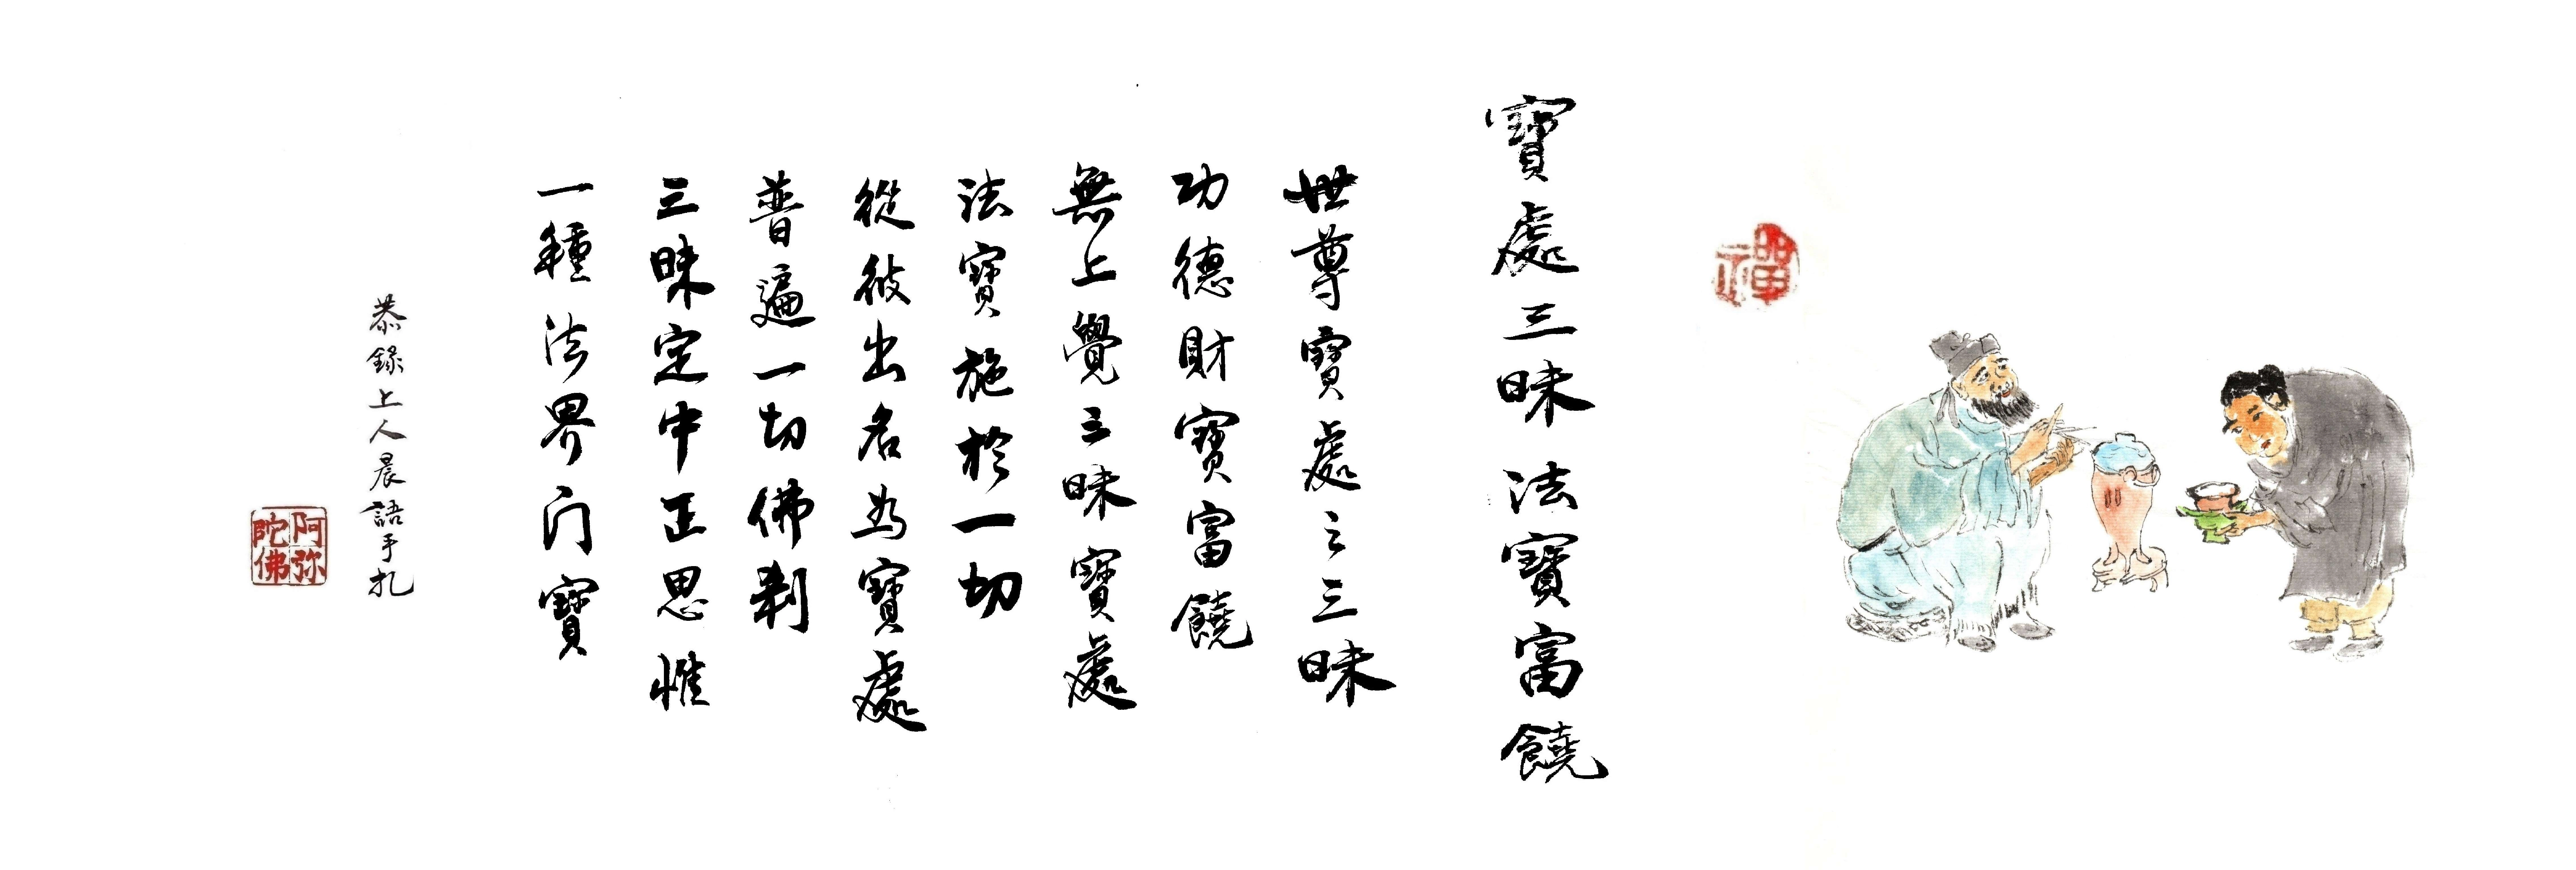 禪
寶處三昧法寶富饒
世尊寶處之三昧
功德財寶富饒
無上覺三昧寶處
法寶施於一切
從彼出名為寶處
普遍一切佛剎
三昧定中正思惟
一種法界门寶
恭錄上人晨語手札
阿弥陀佛